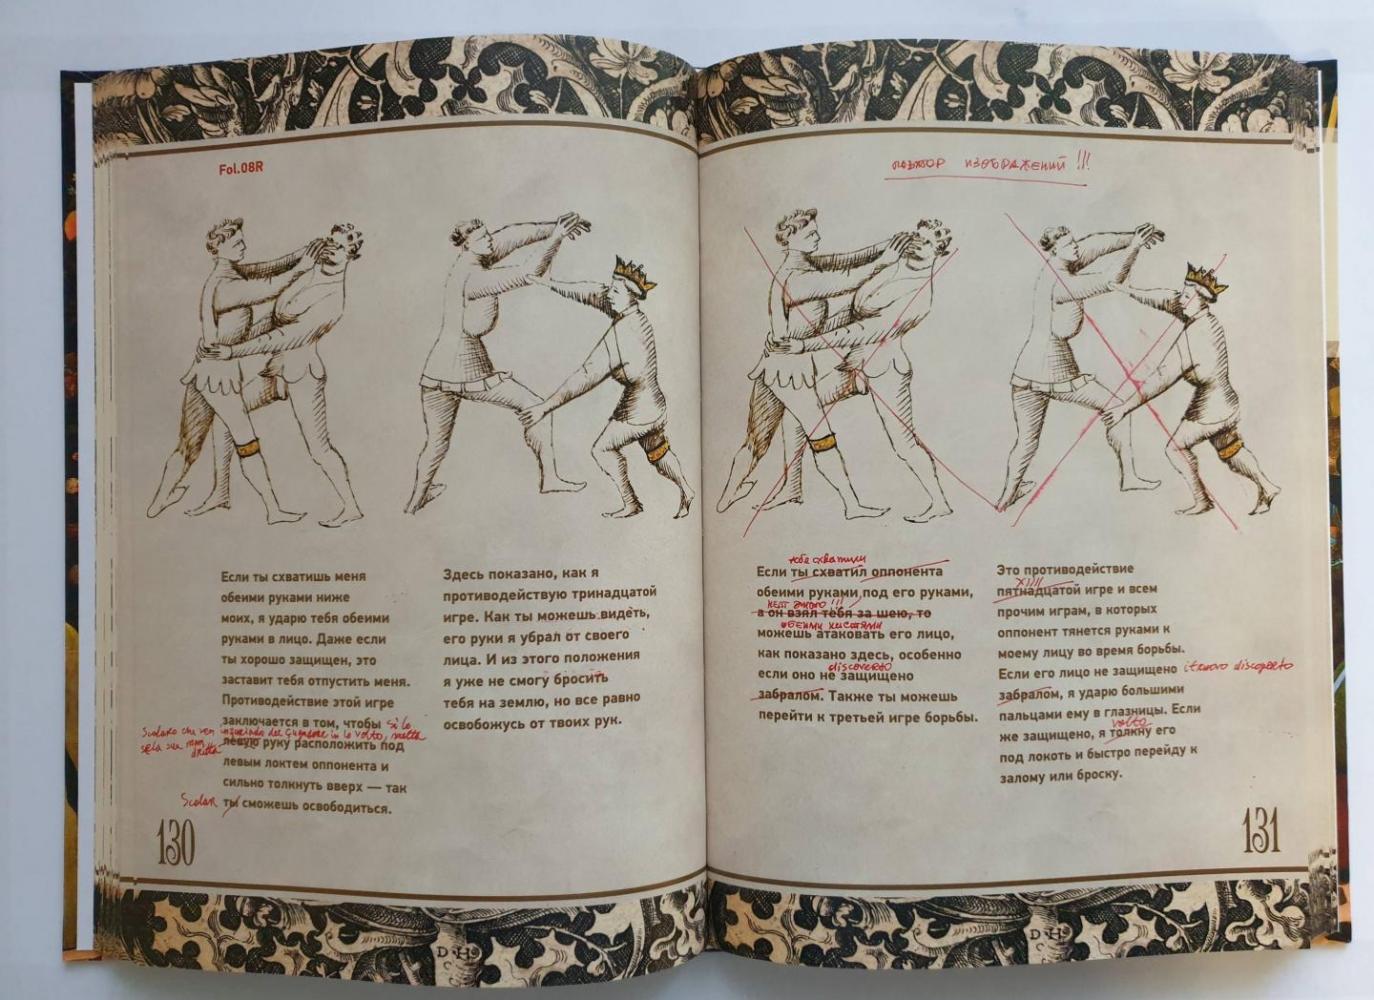 Fol.08R
Если ты схватишь меня
обеими руками ниже
моих, я ударю тебя обеими
руками в лицо. Даже если
ты хорошо защищен, это
заставит тебя отпустить меня.
Противодействие этой игре
заключается в том, чтобы si lo
Scolaro che ven del in lo volto, metta
sela sua man
dritta
левую руку расположить под
левым локтем оппонента и
сильно толкнуть вверх — так
Scolar ты сможешь освободиться.
130
Здесь показано, как я
противодействую тринадцатой
игре. Как ты можешь видеть,
его руки я убрал от своего
лица. И из этого положения
я уже не смогу бросить
тебя на землю, но все равно
освобожусь от твоих рук.
D H
повтор изображений!!!
тебя схватили
Если ты схватил оппонента
обеими руками под его руками,
нет этого!!!
а он взял тебя за шею, то
обеими кистями
можешь атаковать его лицо,
как показано здесь, особенно
discoverto
если оно не защищено
забралом. Также ты можешь
перейти к третьей игре борьбы.
Это противодействие
XIIII
пятнадцатой игре и всем
прочим играм, в которых
оппонент тянется руками к
моему лицу во время борьбы.
Если его лицо не защищено
забралом, я ударю большими
пальцами ему в глазницы. Если
volto
же защищено, я толкну его
под локоть и быстро перейду к
залому или броску.
131
D H